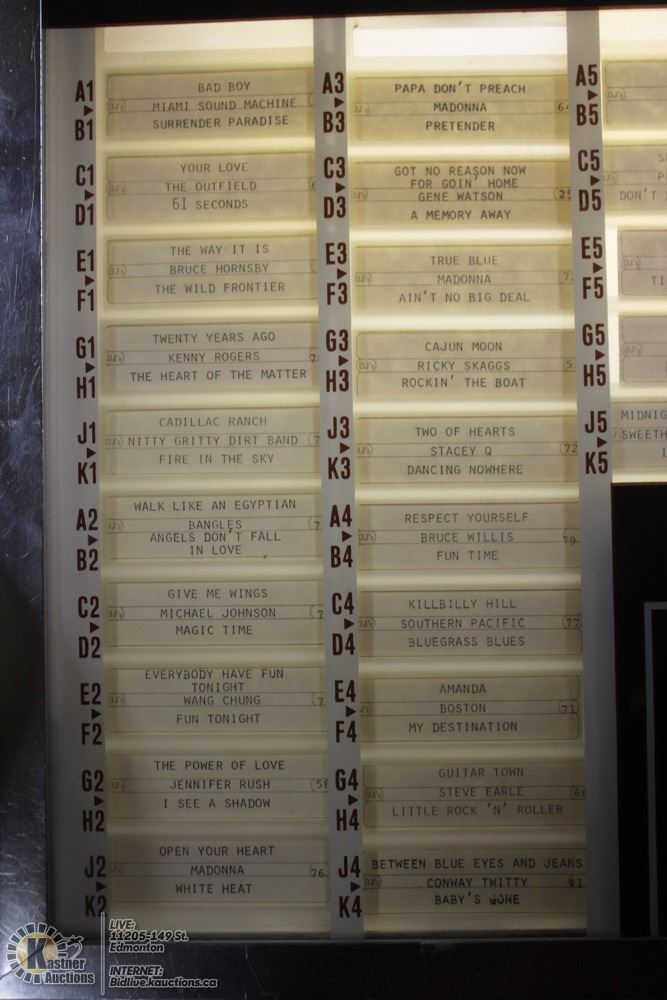 A1
B1
BAD BOY
MIAMI SOUND MACHINE
SURRENDER PARADISE
C1
D1
YOUR LOVE
THE OUTFIELD
61 SECONDS
E1
F1
THE WAY IT IS
BRUCE HORNSBY
THE WILD FRONTIER
G1
H1
TWENTY YEARS AGO
KENNY ROGERS
THE HEART OF THE MATTER
J1
K1
CADILLAC RANCH
NITTY GRITTY DIRT BAND
FIRE IN THE SKY
A2
B2
WALK LIKE AN EGYPTIAN
BANGLES
ANGELS DON'T FALL
IN LOVE
C2
D2
GIVE ME WINGS
MICHAEL JOHNSON
MAGIC TIME
E2
F2
EVERYBODY HAVE FUN
TONIGHT
WANG CHUNG
FUN TONIGHT
G2
H2
THE POWER OF LOVE
JENNIFER RUSH 58
I SEE A SHADOW
J2
K2
OPEN YOUR HEART
MADONNA 76
WHITE HEAT
A3
B3
PAPA DON'T PREACH
MADONNA 64
PRETENDER
C3
D3
GOT NO REASON NOW
FOR GOIN' HOME
GENE WATSON 25
A MEMORY AWAY
E3
F3
TRUE BLUE
MADONNA
AIN'T NO BIG DEAL
G3
H3
CAJUN MOON
RICKY SKAGGS
ROCKIN' THE BOAT
J3
K3
TWO OF HEARTS
STACEY Q 72
DANCING NOWHERE
A4
B4
RESPECT YOURSELF
BRUCE WILLIS 79
FUN TIME
C4
D4
KILLBILLY HILL
SOUTHERN PACIFIC 77
BLUEGRASS BLUES
E4
F4
AMANDA
BOSTON 71
MY DESTINATION
G4
H4
GUITAR TOWN
STEVE EARLE
LITTLE ROCK 'N' ROLLER
J4
K4
BETWEEN BLUE EYES AND JEANS
CONWAY TWITTY 41
BABY'S GONE
A5
B5
C5
D5
DON'T
E5
F5
G5
H5
J5
K5
MIDNIG
SWEETH
Kastner
Auctions
LIVE:
11205-149 St.
Edmonton
INTERNET:
Bidlive.kauctions.ca